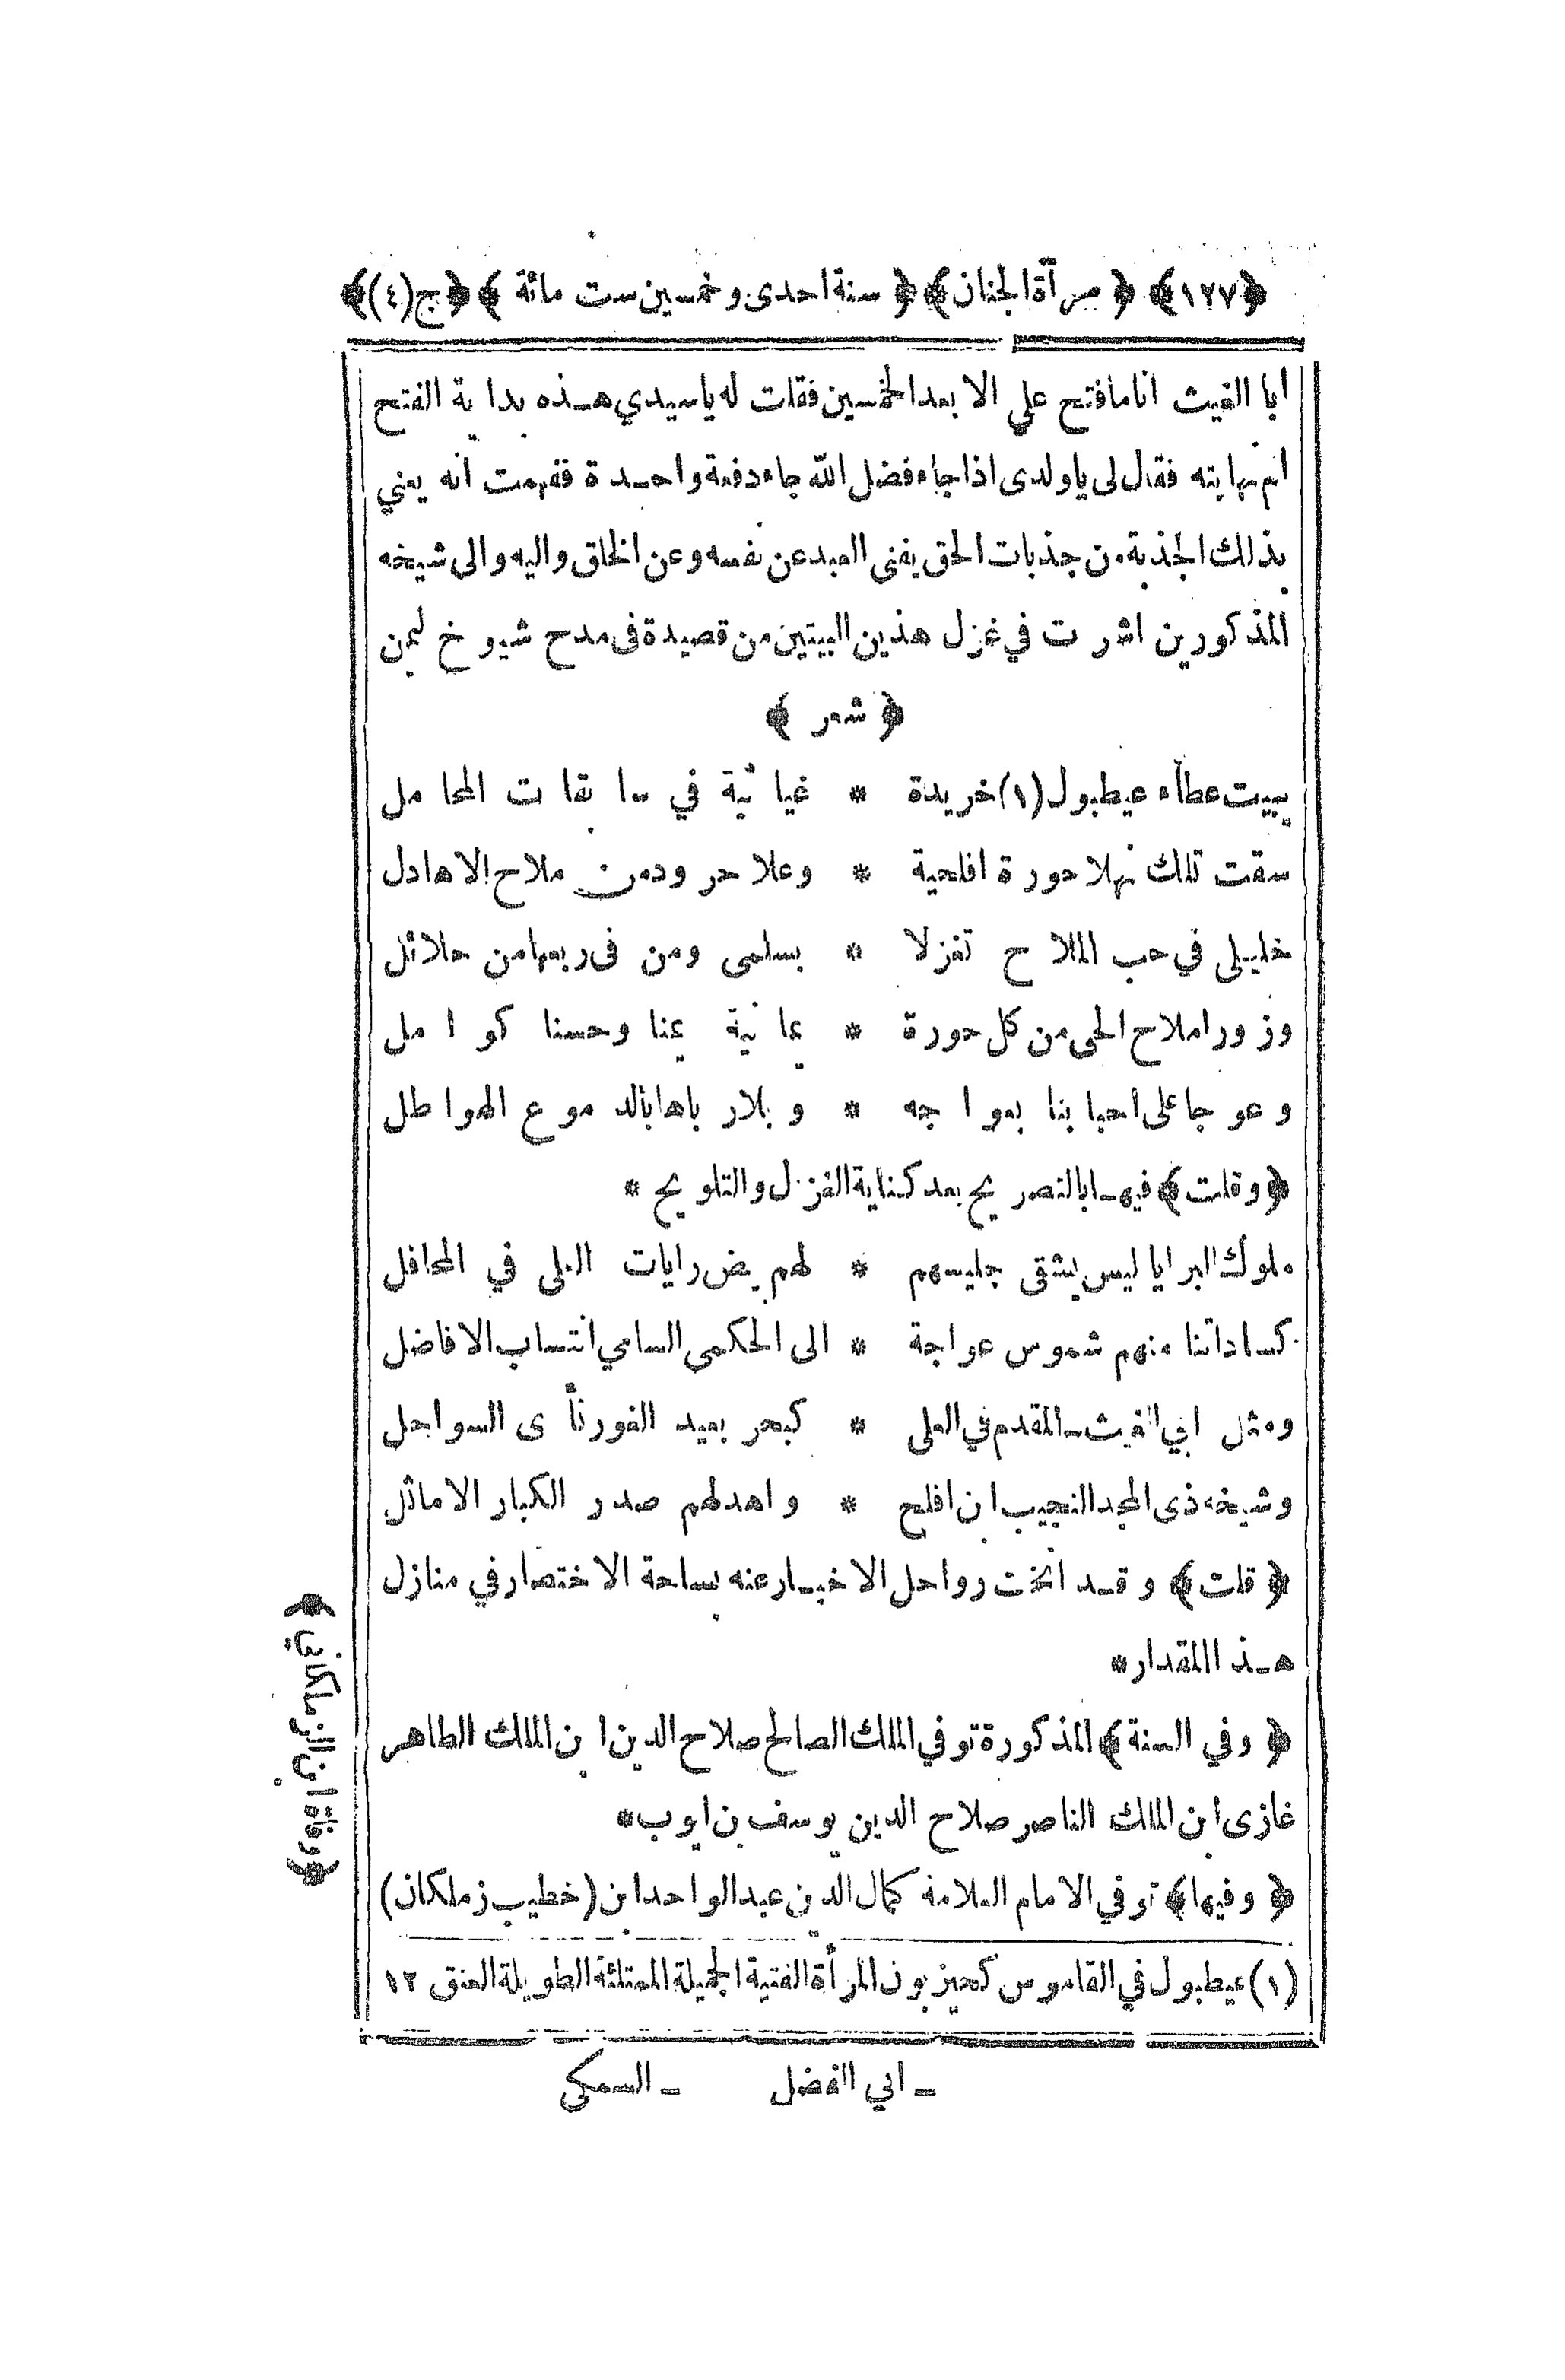 ﴿١٢٧﴾ ﴿ مرآة الجنان﴾ ﴿ سنة احدى وخمسين ست مائة ﴾ ﴿ج(٤)﴾
ابا الغيث انا مافتح علي الا بعد الخمسين فقلت له ياسيدي هذه بداية الفتح
ام نهايته فقال لى ياولدى اذا جاء فضل الله جاء دفعة واحدة ففهمت انه يعني
بذلك الجذبة من جذبات الحق يفنى العبد عن نفسه وعن الخلق واليه والى شيخه
المذكورين اشرت في غزل هذين البيتين من قصيدة فى مدح شيوخ ليمن
﴿ شعر ﴾
ببيت عطاء عيطبول(١)خريدة * غياثية في سابقات المحامل
سقت تلك نهلا حورة افلحية * وعلا حر ودمن ملاح الاهادل
خليلى في حب الملاح تغزلا * بسلمى ومن فى ربعها من حلائل
وزورا ملاح الحى من كل حورة * يمانية يمنا وحسنا كوامل
وعوجا على احبابنا بعواجه * وبلار باها بالدموع الهواطل
﴿وقلت﴾ فيها بالتصريح بعد كناية الغزل والتلويح *
ملوك البرايا ليس يشقى جليسهم * لهم بيض رايات العلى في المحافل
كساداتنا منهم شموس عواجة * الى الحكمى السامي انتساب الافاضل
ومثل ابي الغيث المقدم في العلى * كبحر بعيد الغور نأى السواحل
وشيخه ذى المجد النجيب ابن افلح * واهدلهم صدر الكبار الاماثل
﴿ قلت﴾ وقد انخت رواحل الاخبار عنه بساحة الاختصار في منازل
هذا المقدار*
﴿ وفي السنة﴾ المذكورة توفي الملك الصالح صلاح الدين ابن الملك الطاهر
غازى ابن الملك الناصر صلاح الدين يوسف بن ايوب*
﴿ وفيها﴾ توفي الامام العلامة كمال الدين عبد الواحد ابن (خطيب زملكان)
﴿وفاة ابن الزملكاني﴾
(١) عيطبول في القاموس كحيزبون المرأة الفتية الجميلة الممتلئة الطويلة العنق ١٢
ـ ابي الفضل ـ السمكى